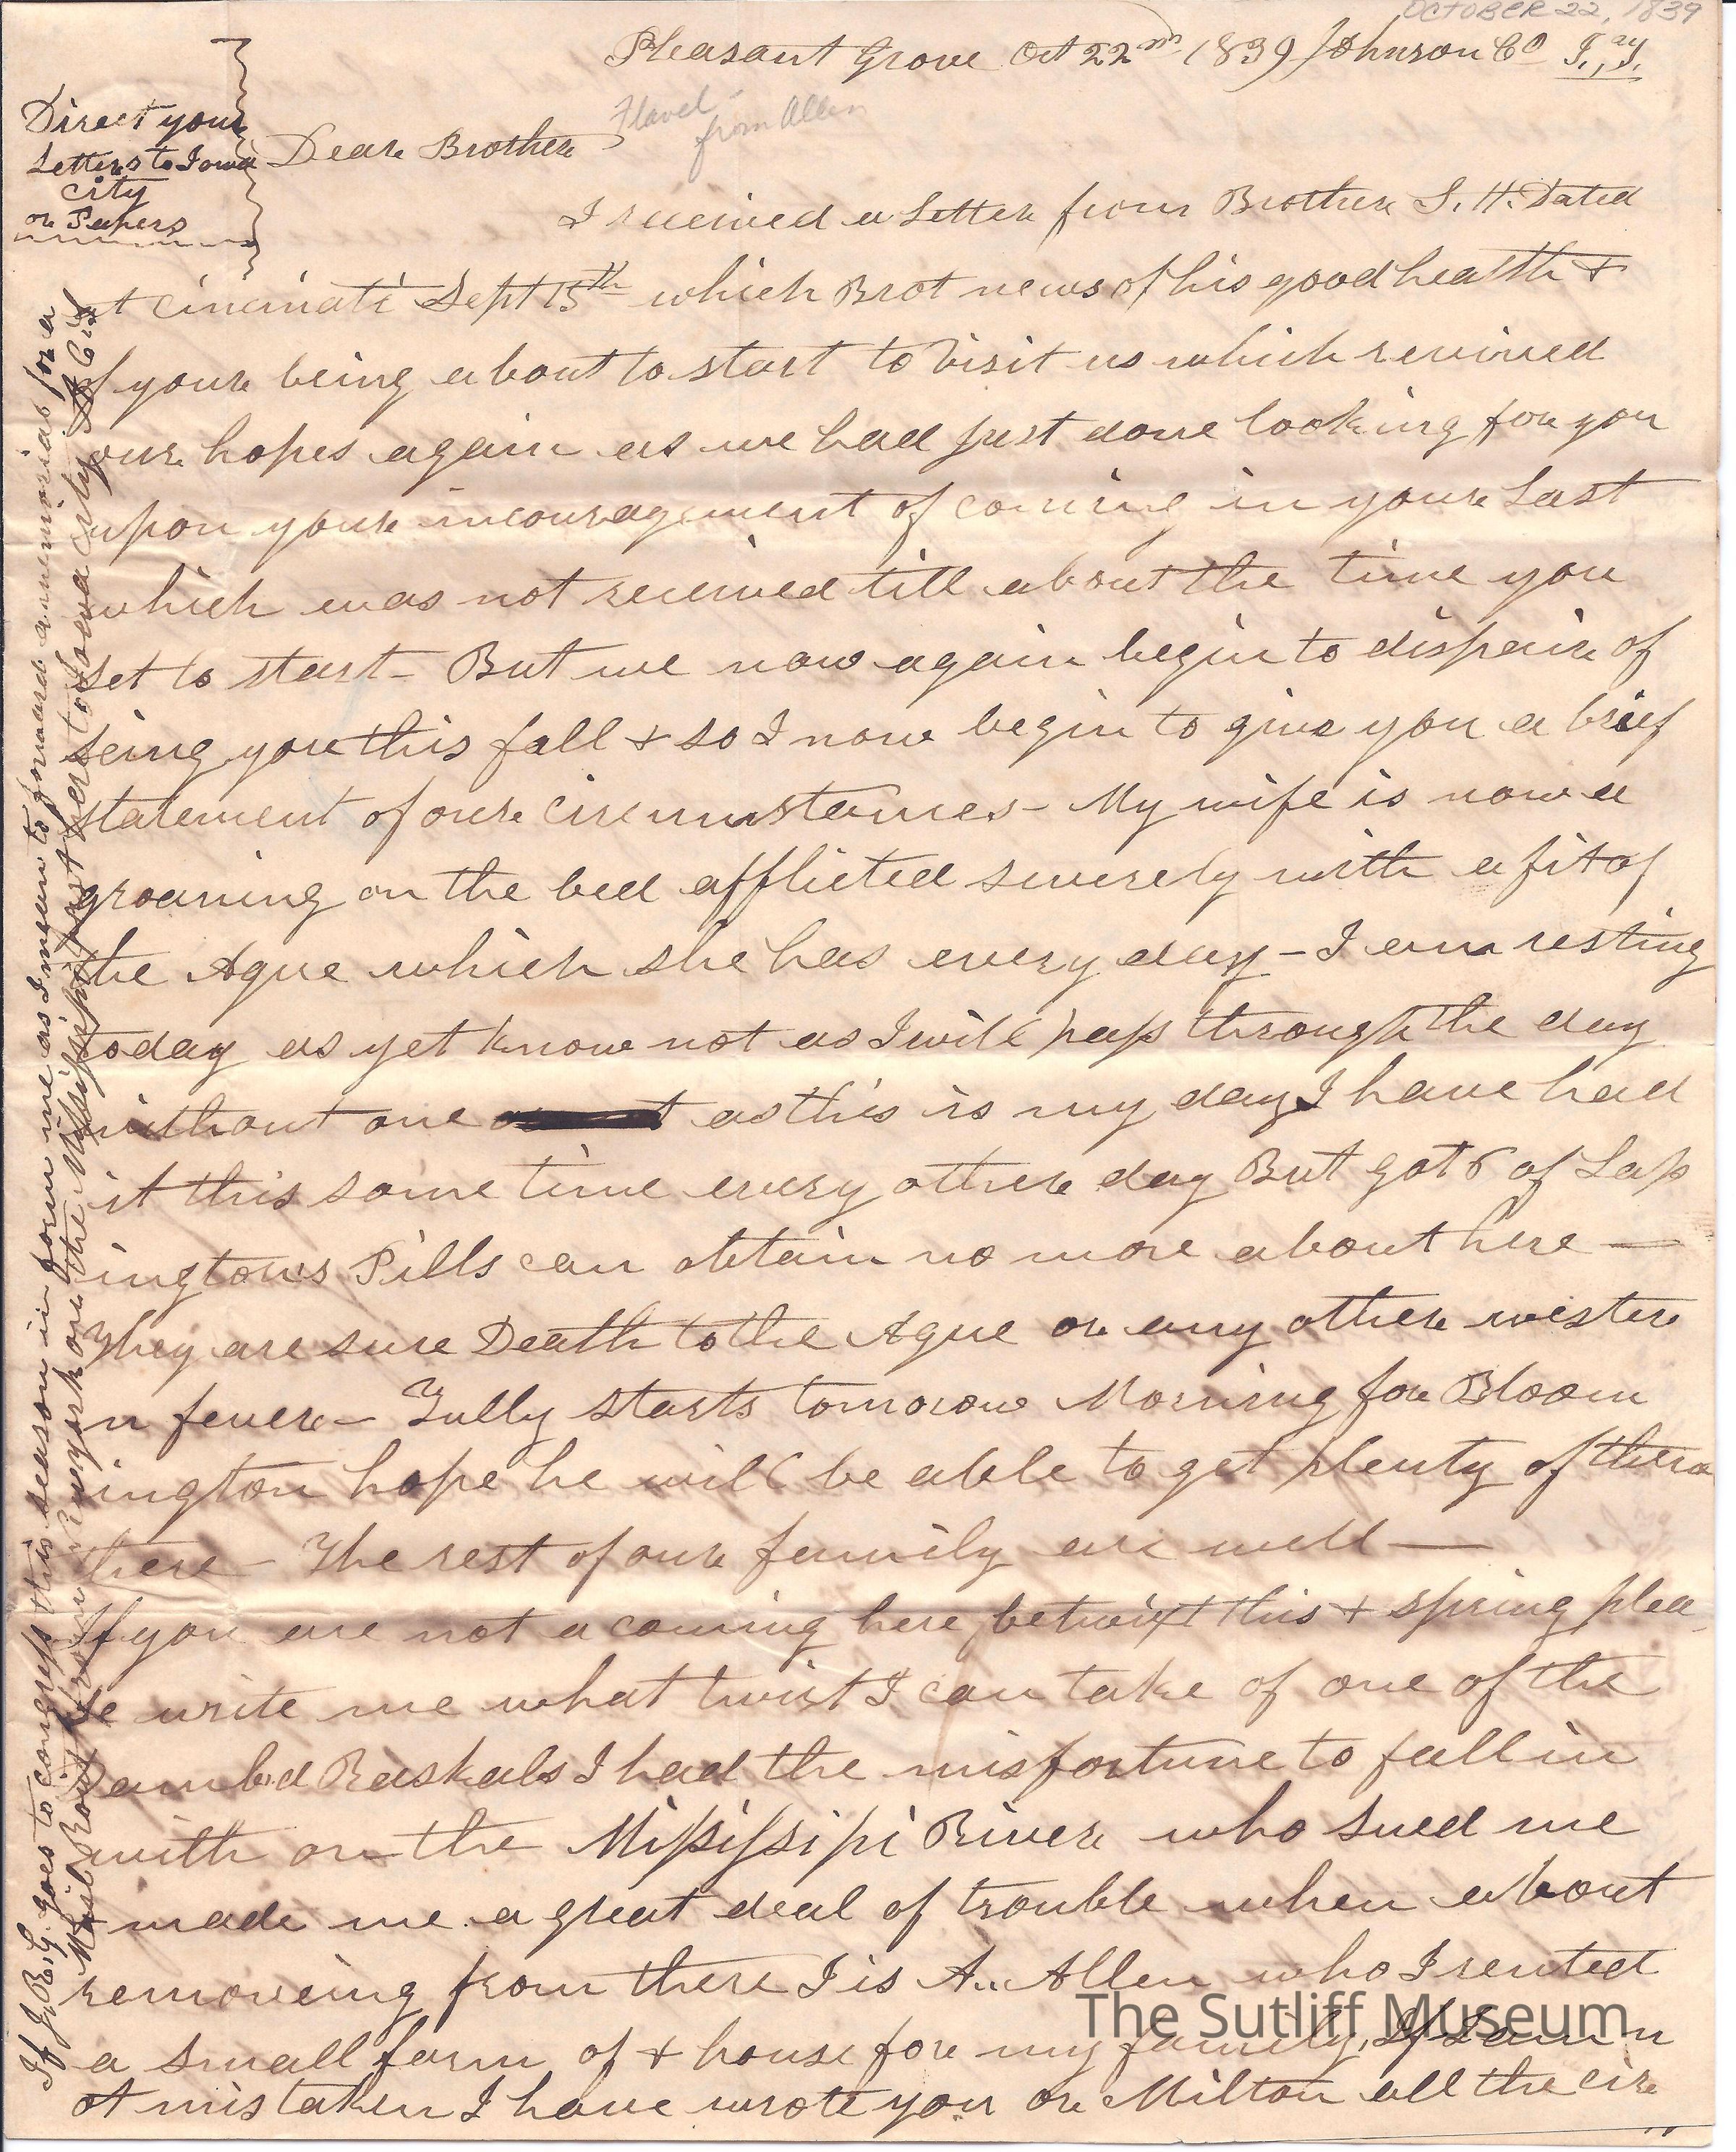 OCTOBER 22, 1839
Pleasant Grove Oct 22nd 1839 Johnson Co I,,y.
Direct your
Letters to Iowa
City
or Papers
Flavel
from Allen
Dear Brother
I received a Letter from Brother S. H. Dated
at cincinati Sept 15th which Brot news of his good health &
of your being about to start to visit us which revived
our hopes again as we had just done looking for you
upon your incouragement of coming in your Last
which was not received till about the time you
set to start - But we now again begin to dispair of
seing you this fall & so I now begin to give you a brief
statement of our circumstances - My wife is now a
groaning on the bed afflicted severely with a fit of
the Ague which she has every day - I am resting
today as yet know not as I will pass through the day
without one as this is my day I have had
it this some time every other day But got 6 of Lap
ingtons Pills can obtain no more about here —
They are sure Death to the Ague or any other wester
n fever - Tully starts tomorow Morning for Bloom
ington hope he will be able to get plenty of them
there - The rest of our family are well —
If you are not a coming here betwixt this & spring plea
se write me what twist I can take of one of the
Raskals I had the misfortune to fall in
with on the Missisipi River who sued me
& made me a great deal of trouble when about
removeing from there I is A.. Allen who I rented
a small farm of & house for my family, If I am n
ot mistaken I have wrote you or Milton all the cir
If J. R. G. goes to congress this season inform me as I mean to forward a memorial for a
Mail Rout from New york on the Missisipi west here to Iowa City
The Sutliff Museum